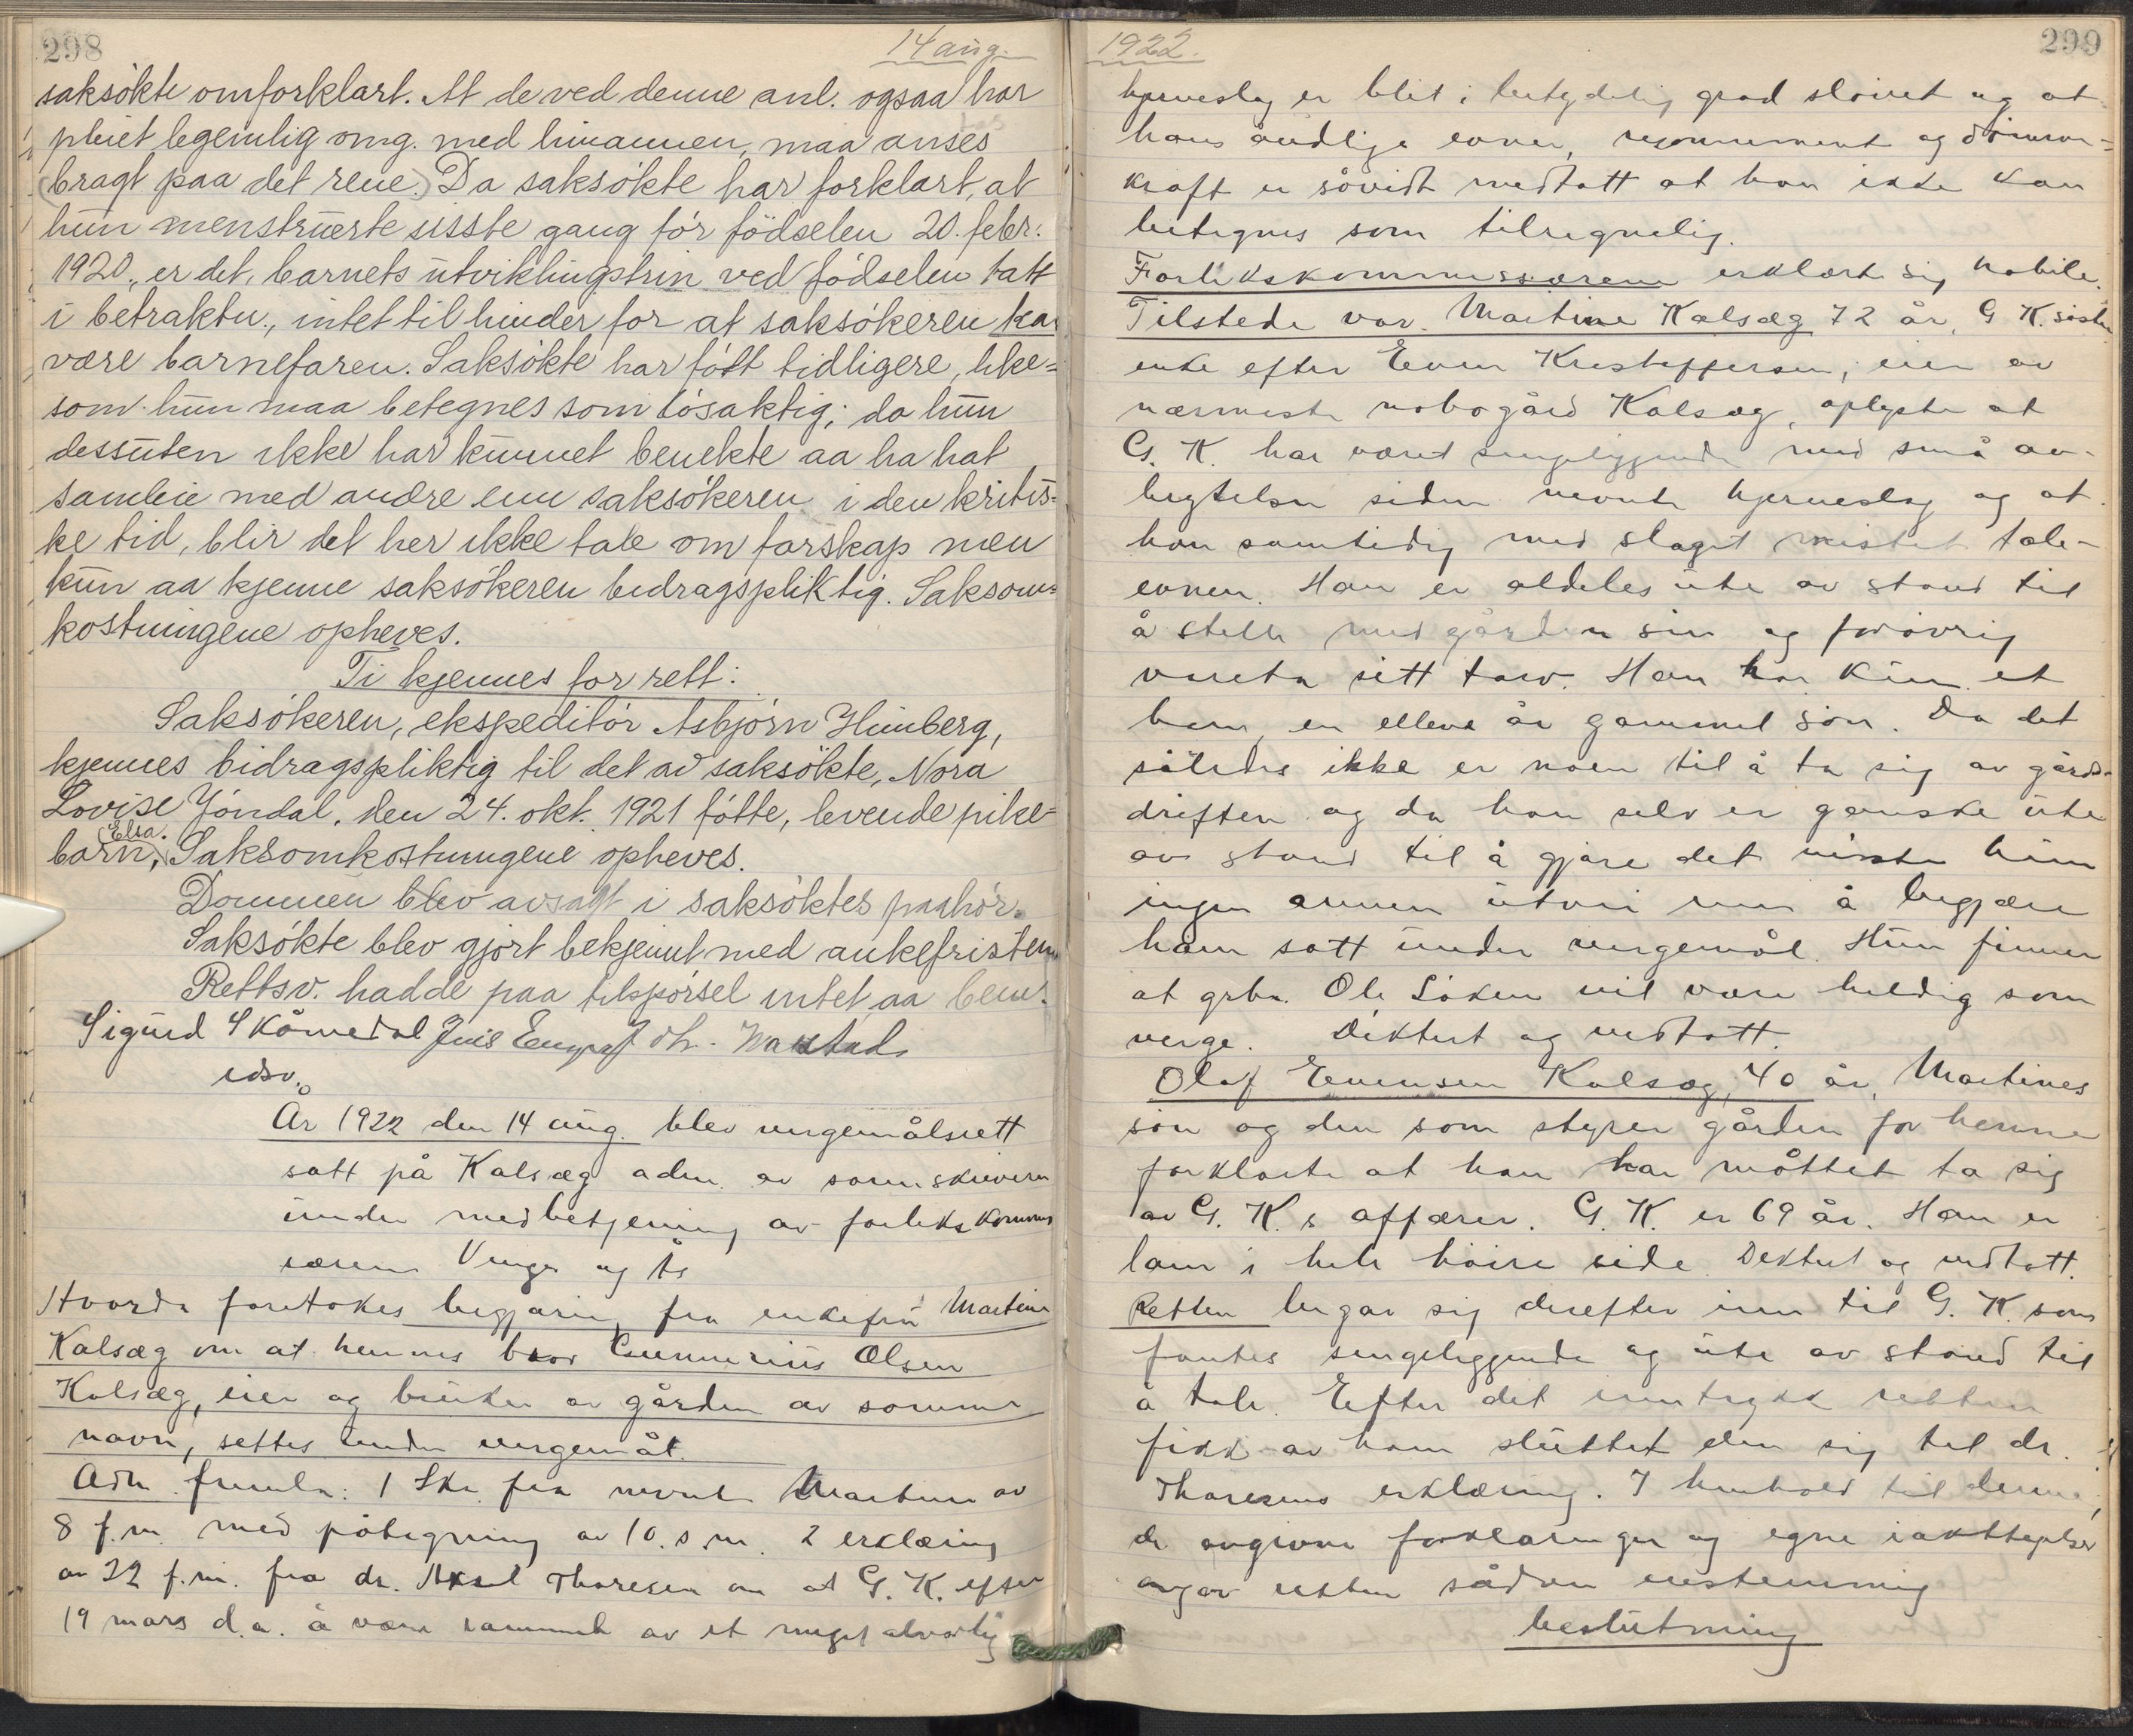 298
14 aug.
saksökte omforklart. At de ved denne anl. ogsaa har
pleiet legemlig omg. med hinannen, maa anses
(bragt paa det rene.) Da saksökte har forklart, at
hun menstruerte sisste gang før födselen 20. febr.
1920., er det, barnets utviklingstrin ved födselen tatt
i betraktn., intet til hinder for at saksökeren kan
være barnefaren. Saksökte har fött tidligere, like=
som hun maa betegnes som lösaktig; da hun
dessuten ikke har kunnet benekte aa ha hat
samleie med andre enn saksökeren i den kritis=
ke tid, blir det her ikke tale om farskap men
kun aa kjenne saksökeren bidragspliktig. Saksom=
kostningene opheves.
Ti kjennes for rett:
Saksökeren, ekspeditör Asbjörn Himberg,
kjennes bidragspliktig til det av saksökte, Nora
Lovise Jöndal, den 24. okt. 1921 fötte, levende pike=
barn, Elsa. Saksomkostningene opheves.
Dommen blev avsagt i saksöktes paahör.
Saksökte blev gjort bekjennt med ankefristen
Rettsv. hadde paa tilspörsel intet aa bem.
Sigurd Skåmedal
edsv.
År 1922 den 14 aug. blev vergemålsrett
satt på Kalsæg adm. av sorenskriveren
under medbetjening av forlikskommis
særene Venger og Ås
Hvorda foretokes begjæring fra enkefru Martine
Kalsæg om at hennes bror Gunnerius Olsen
Kalsæg, eier og bruker av gården av samme
navn, settes under vergemål.
Adm. fremla: 1 Skr. fra nevnte Martine av
8 f.m. med påtegning av 10. s.m. 2 erklæring
av 22 f.m. fra dr. Aksel Thoresen om at G. K. efter
19 mars d.a. å være rammet av et meget alvorlig
1922.
299
hjerneslag er blit i betydelig grad slöivet og at
hans åndlige evner, resonnement og dömme=
kraft er såvidt medtatt at han ikke kan
betegnes som tilregnelig.
Forlikskommissærene erklærte sig habile.
Tilstede var Martine Kalsæg 72 år, G K. söster
enke efter Even Kristoffersen, eier av
nærmeste nabogård Kalsæg, oplyste at
G. K. har været sengeliggende med små av-
brytelser siden nevnte hjerneslag og at
han samtidig med slaget mistet tale-
evnen. Han er aldeles ute av stand til
å stelle med gården sin og forövrig
vareta sitt tarv. Han har kun et
barn, en elleve år gammel sön. Da det
således ikke er noen til å ta sig av gårds-
driften og da han selv er ganske ute
av stand til å gjöre det visste hun
ingen annen utvei enn å begjære
ham satt under vergemål. Hun finner
at grbr. Ole Löken vil være heldig som
verge. Diktert og vedtatt.
Olaf Evensen Kalsæg, 40 år, Martines
sön og den som styrer gården for henne
forklarte at han har måttet ta sig
av G. K.s affærer. G. K. er 69 år. Han er
lam i hele höire side. Diktert og vedtatt.
Retten begav sig derefter inn til G. K. som
fantes sengeliggende og ute av stand til
å tale. Efter det inntrykk retten
fikk av ham sluttet den sig til dr.
Thoresens erklæring. I henhold til denne,
de avgivne forklaringer og egne iakttagelser
avgav retten sådan enstemmig
beslutning